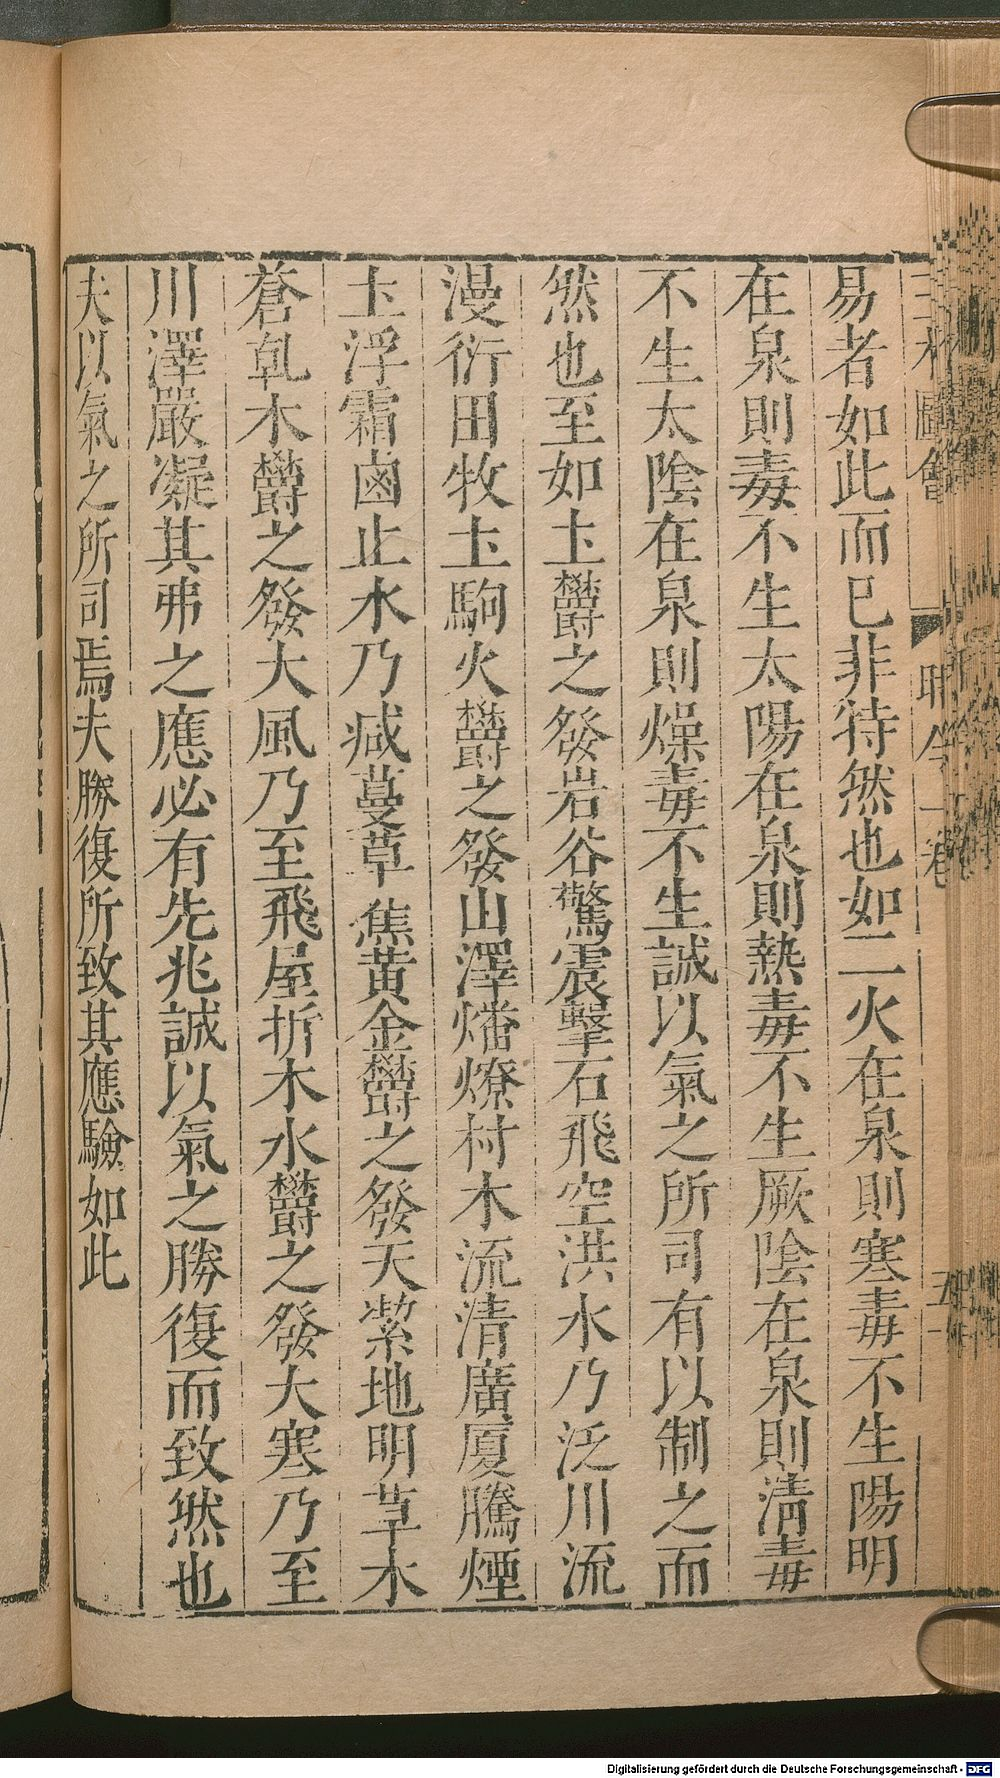 三才圖會
時令一卷
五
易者如此而已非待然也如二火在泉則寒毒不生陽明
在泉則毒不生太陽在泉則熱毒不生厥陰在泉則清毒
不生太陰在泉則燥毒不生誠以氣之所司有以制之而
然也至如𡈽欝之發岩谷驚震擊石飛空洪水乃泛川流
漫衍田牧𡈽駒火欝之發山澤燔燎村木流清廣厦騰煙
𡈽浮霜鹵止水乃减蔓草焦黄金欝之發天絜地明草木
蒼乹木欝之發大風乃至飛屋折木水欝之發大寒乃至
川澤嚴凝其弗之應必有先兆誠以氣之勝復而致然也
夫以氣之所司焉夫勝復所致其應驗如此
Digitalisierung gefördert durch die Deutsche Forschungsgemeinschaft - DFG